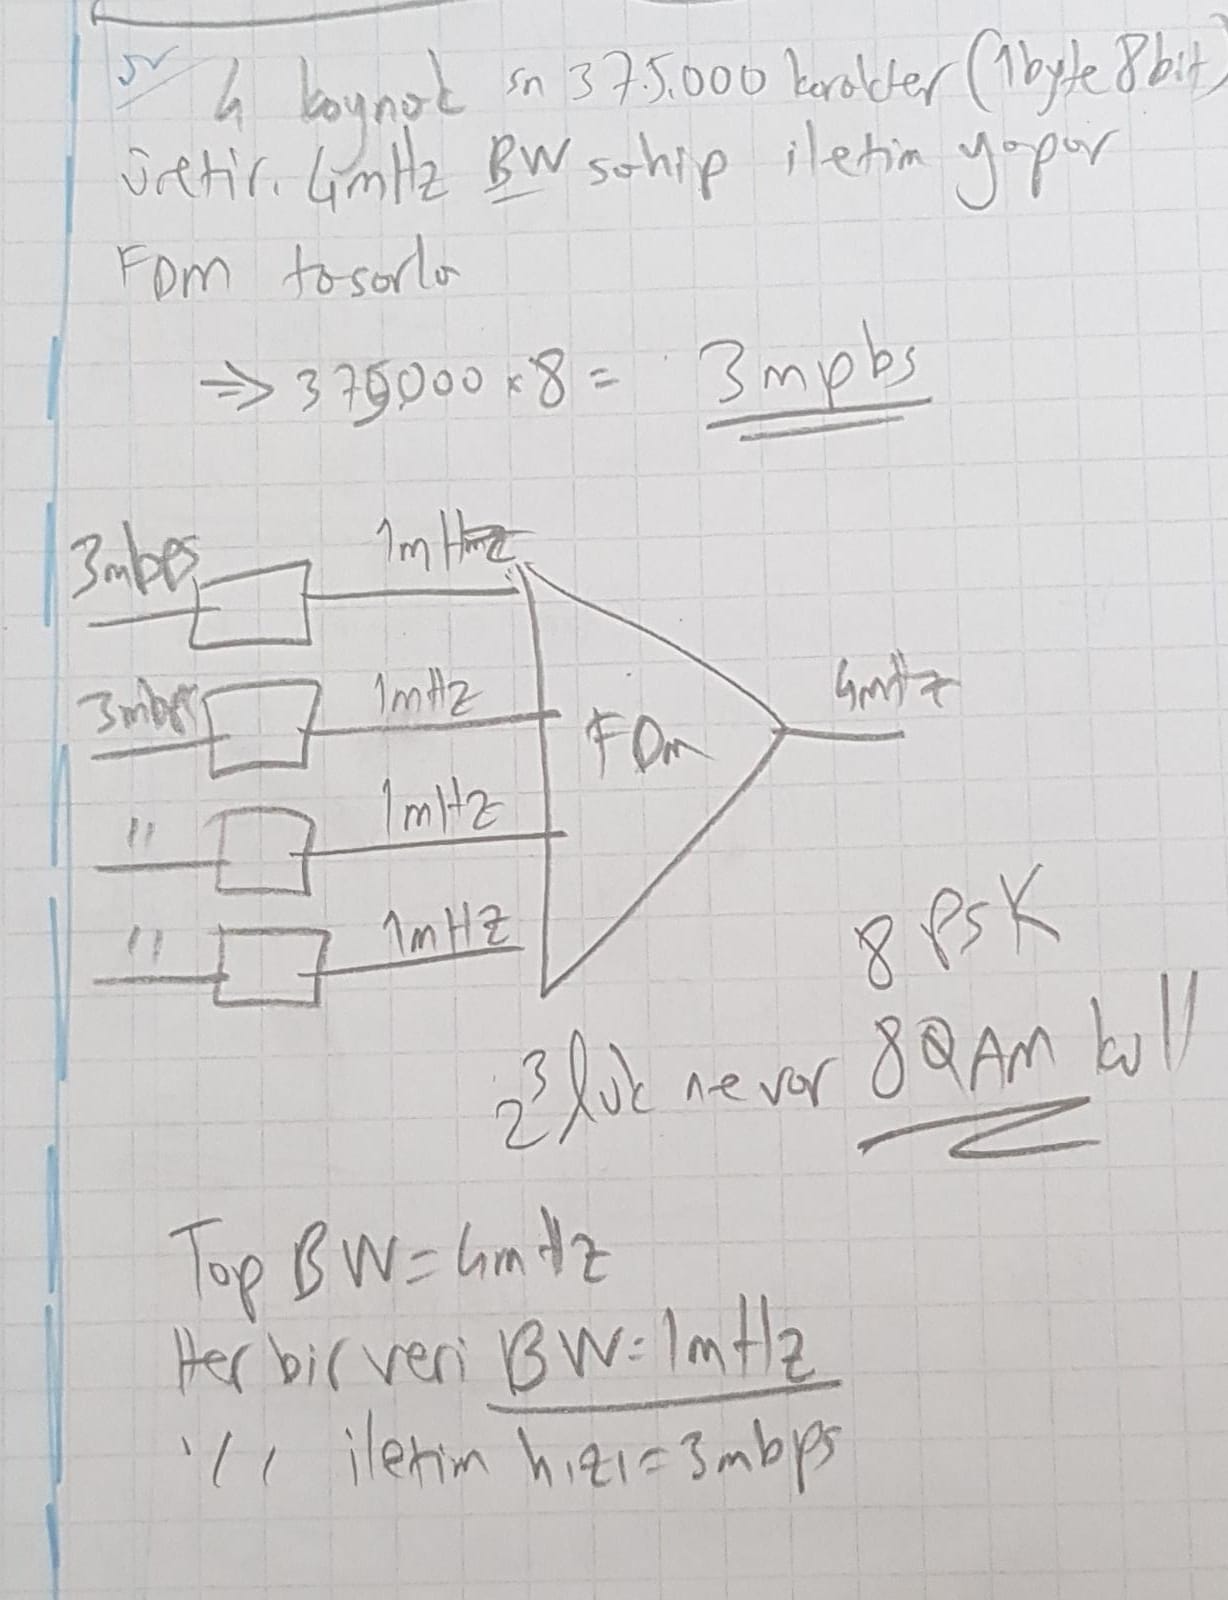 4 kaynak sn 375.000 karakter (1byte 8bit)
üretir. 4mHz BW sahip iletim yapar
FDM tasarla
⇒ 375000 x 8 = 3mpbs
3mbps 1mHz
3mbps 1mHz
" 1mHz
" 1mHz
FDM 4mHz
8 PSK
2³ lük ne var 8QAM kull
Top BW = 4mHz
Her bir veri BW = 1mHz
" iletim hızı = 3mbps